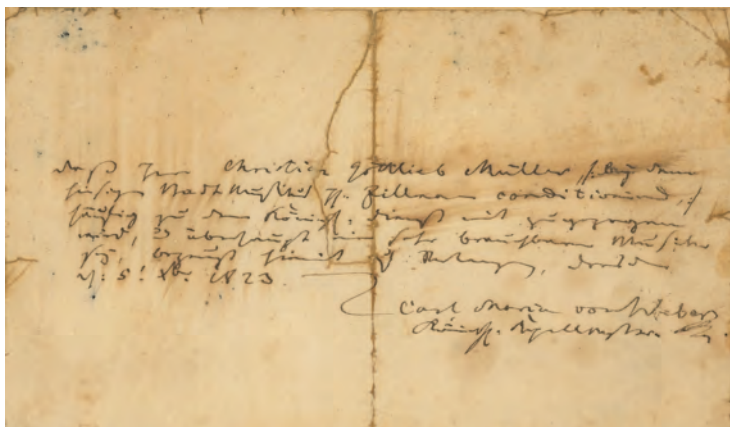 daß Herr Christian Gottlieb Müller /: bey dem
hiesigen Stadt Musikus H. Zillmann conditionirend, :/
häufig zu dem Königl. Dienst mit zugezogen
wird, u überhaupt ein sehr brauchbarer Musiker
sey, bezeugt hiemit auf Verlangen, Dresden
d: 5! 1823.
Carl Maria von Weber
Königl. Kapellmeister